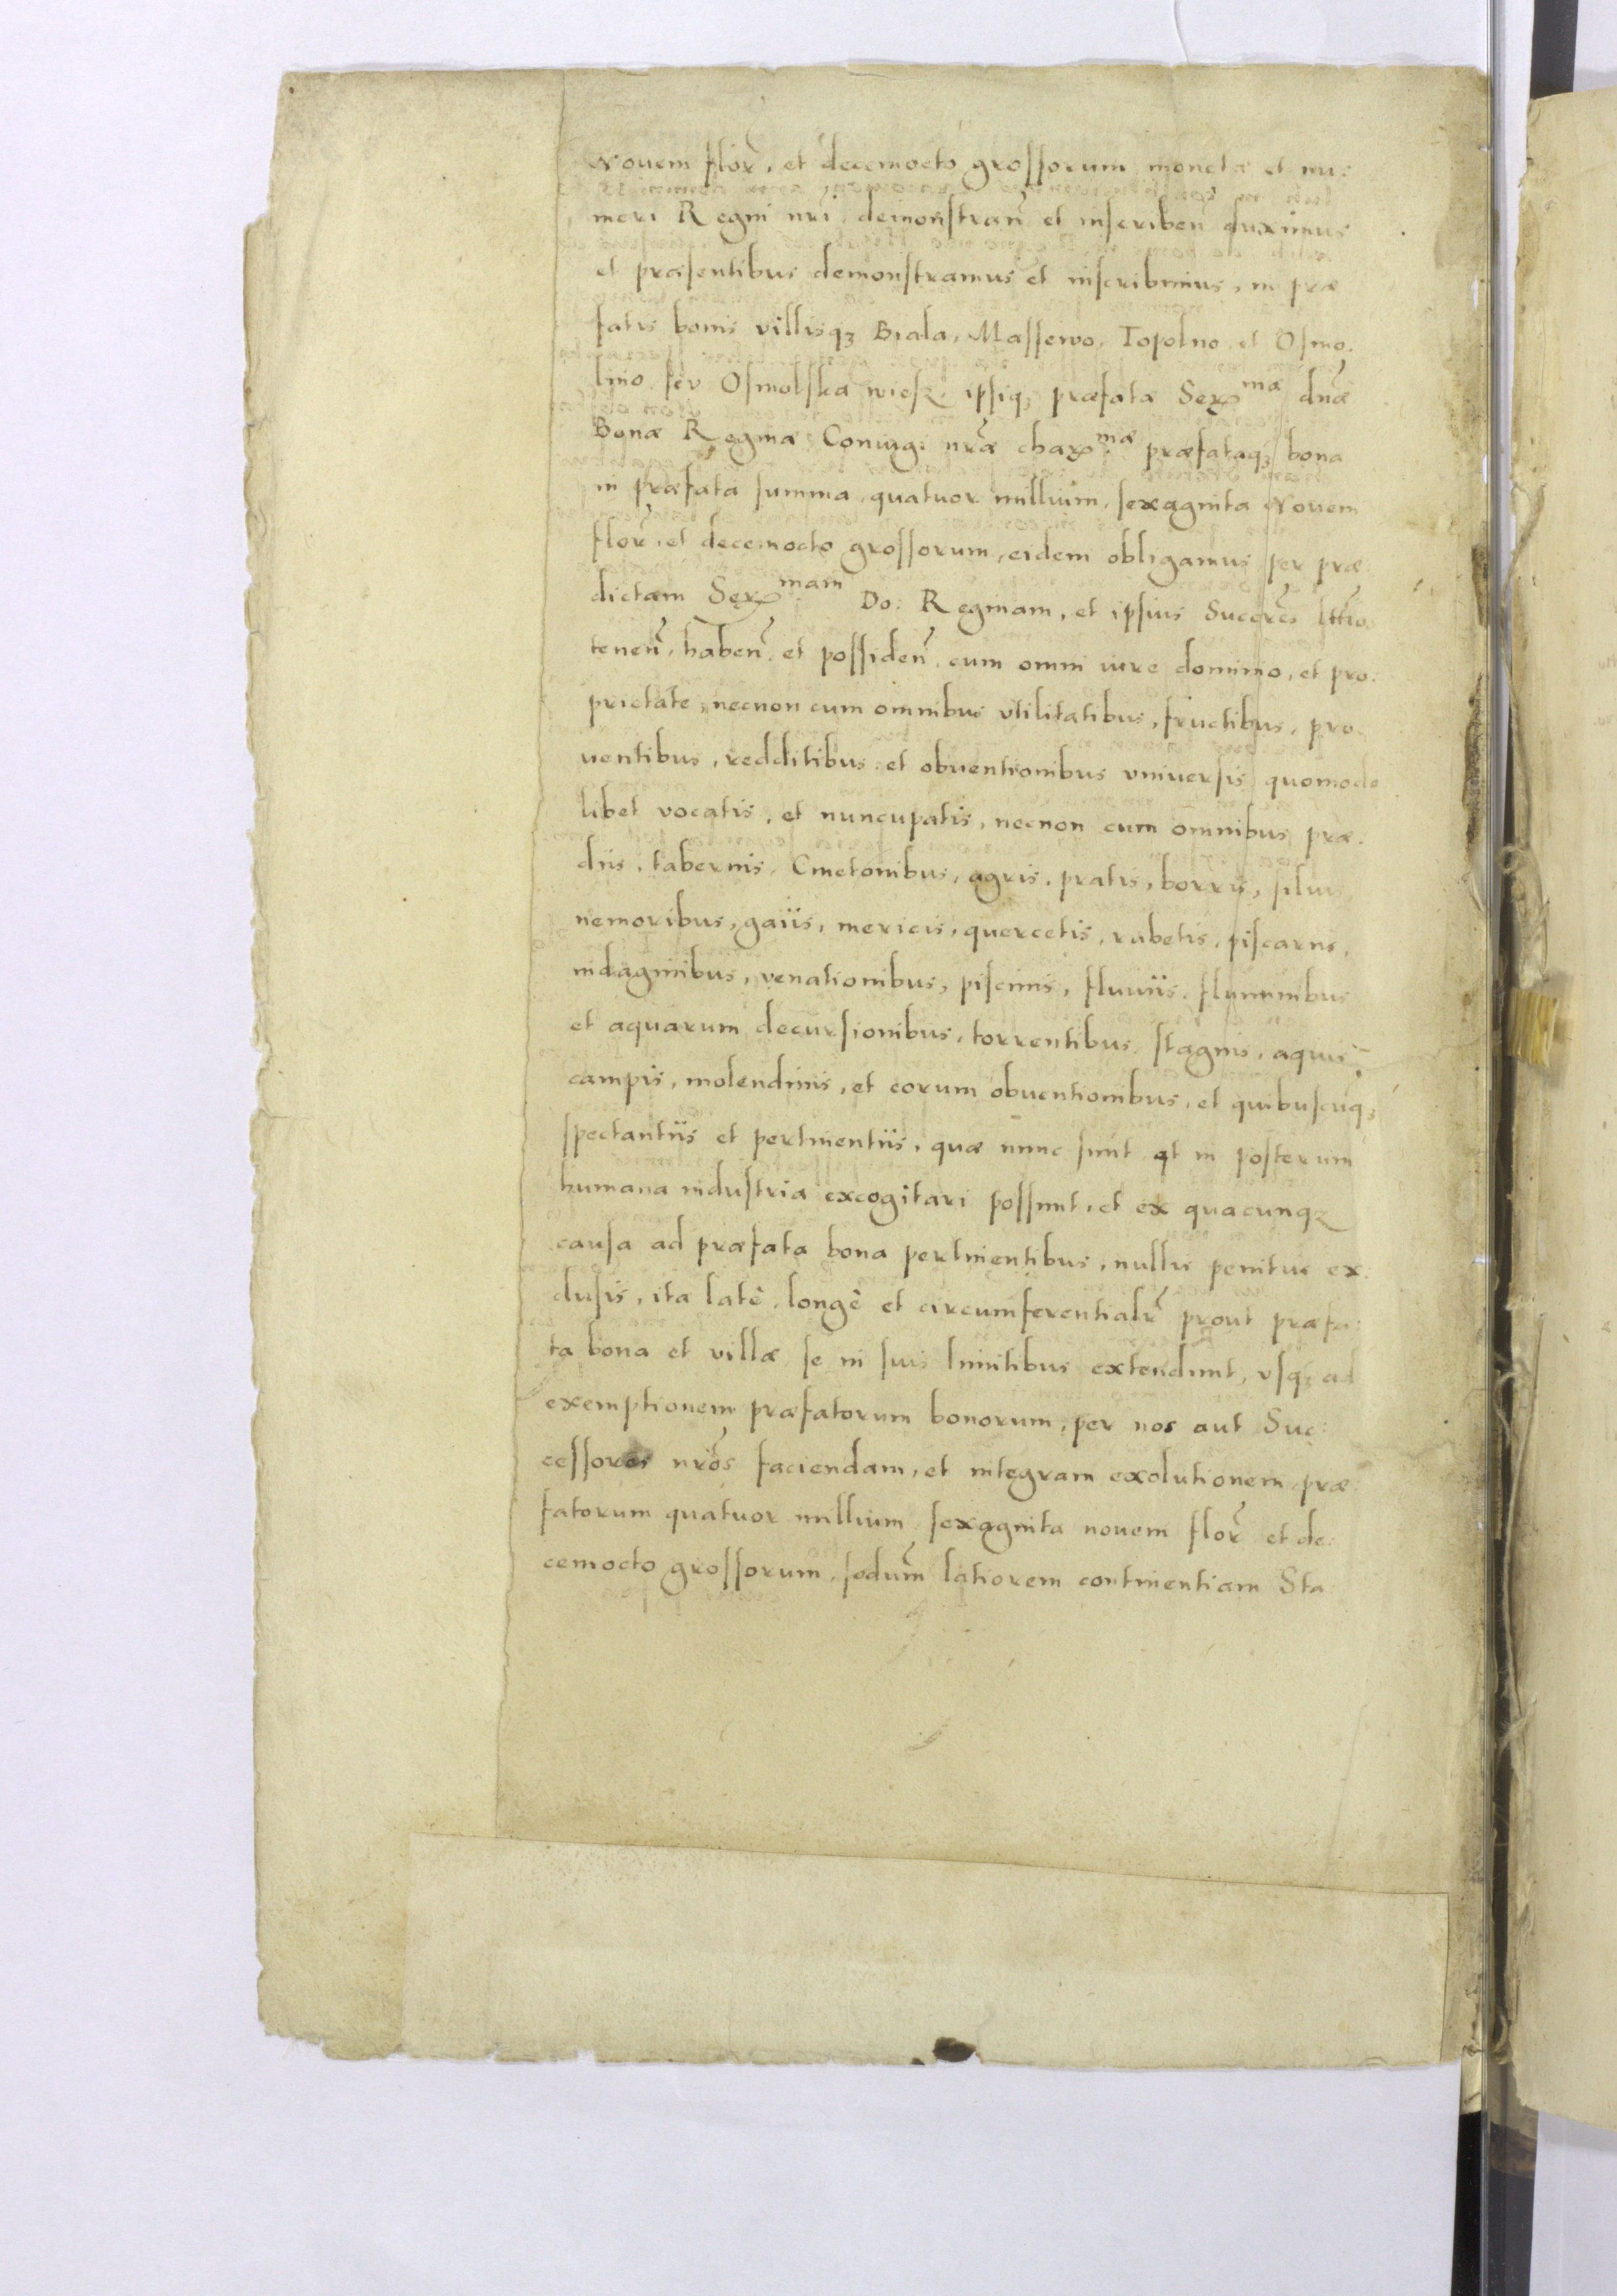 Nouem flor̃, et decemocto grossorum monetæ et nu:
meri Regni nr̃i demonstran̄ et inscriben̄ duximus
et præsentibus demonstramus et inscribimus, in præ
fatis bonis villisq₃ Biala, Massewo, Topolno et Osmo.
lino seu Osmolska wiesz, ipsiq₃ præfatæ Ser^mæ dnæ
Bonæ Reginæ Coniugi nr̃æ char^mæ præfataq₃ bona
in præfata summa quatuor millium, sexaginta Nouem
flor̃, et decemocto grossorum, eidem obligamus per præ
dictam Ser^mam Do: Reginam, et ipsius Succr̃es lttĩo
tenen̄, haben̄, et possiden̄, cum omni iure dominio, et pro.
prietate, necnon cum omnibus vtilitatibus, fructibus, pro.
uentibus, redditibus et obuentionibus vniuersis quomodo
libet vocatis, et nuncupatis, necnon cum omnibus præ.
diis, tabernis, Cmetonibus, agris, pratis, borris, siluis
nemoribus, gaiis, mericis, quercetis, rubetis, piscariis,
indaginibus, venationibus, piscinis, fluuiis, fluminibus
et aquarum decursionibus, torrentibus, stagnis, aquis
campis, molendinis, et eorum obuentionibus, et quibuscuq₃
spectantiis et pertinentiis, quæ nunc sunt et in posterum
humana industria excogitari possunt, et ex quacunq₃
causa ad præfata bona pertinentibus, nullis penitus ex:
clusis, ita latè, longè et circumferentialr̃ prout præfa:
ta bona et villæ se in suis limitibus extendunt, vsq₃ ad
exemptionem præfatorum bonorum, per nos aut Suc:
cessores nr̃os faciendam, et integram exolutionem præ
fatorum quatuor millium sexaginta nouem flor̃ et de:
cemocto grossorum, sedum̃ latiorem continentiam Sta